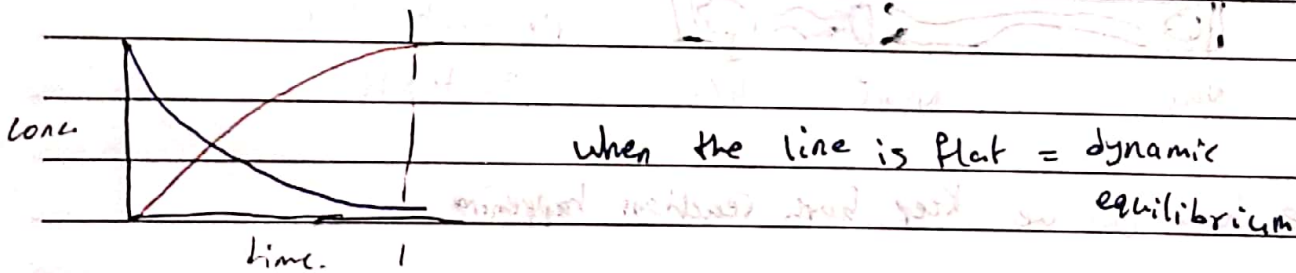 conc.
when the line is flat = dynamic
equilibrium
time.